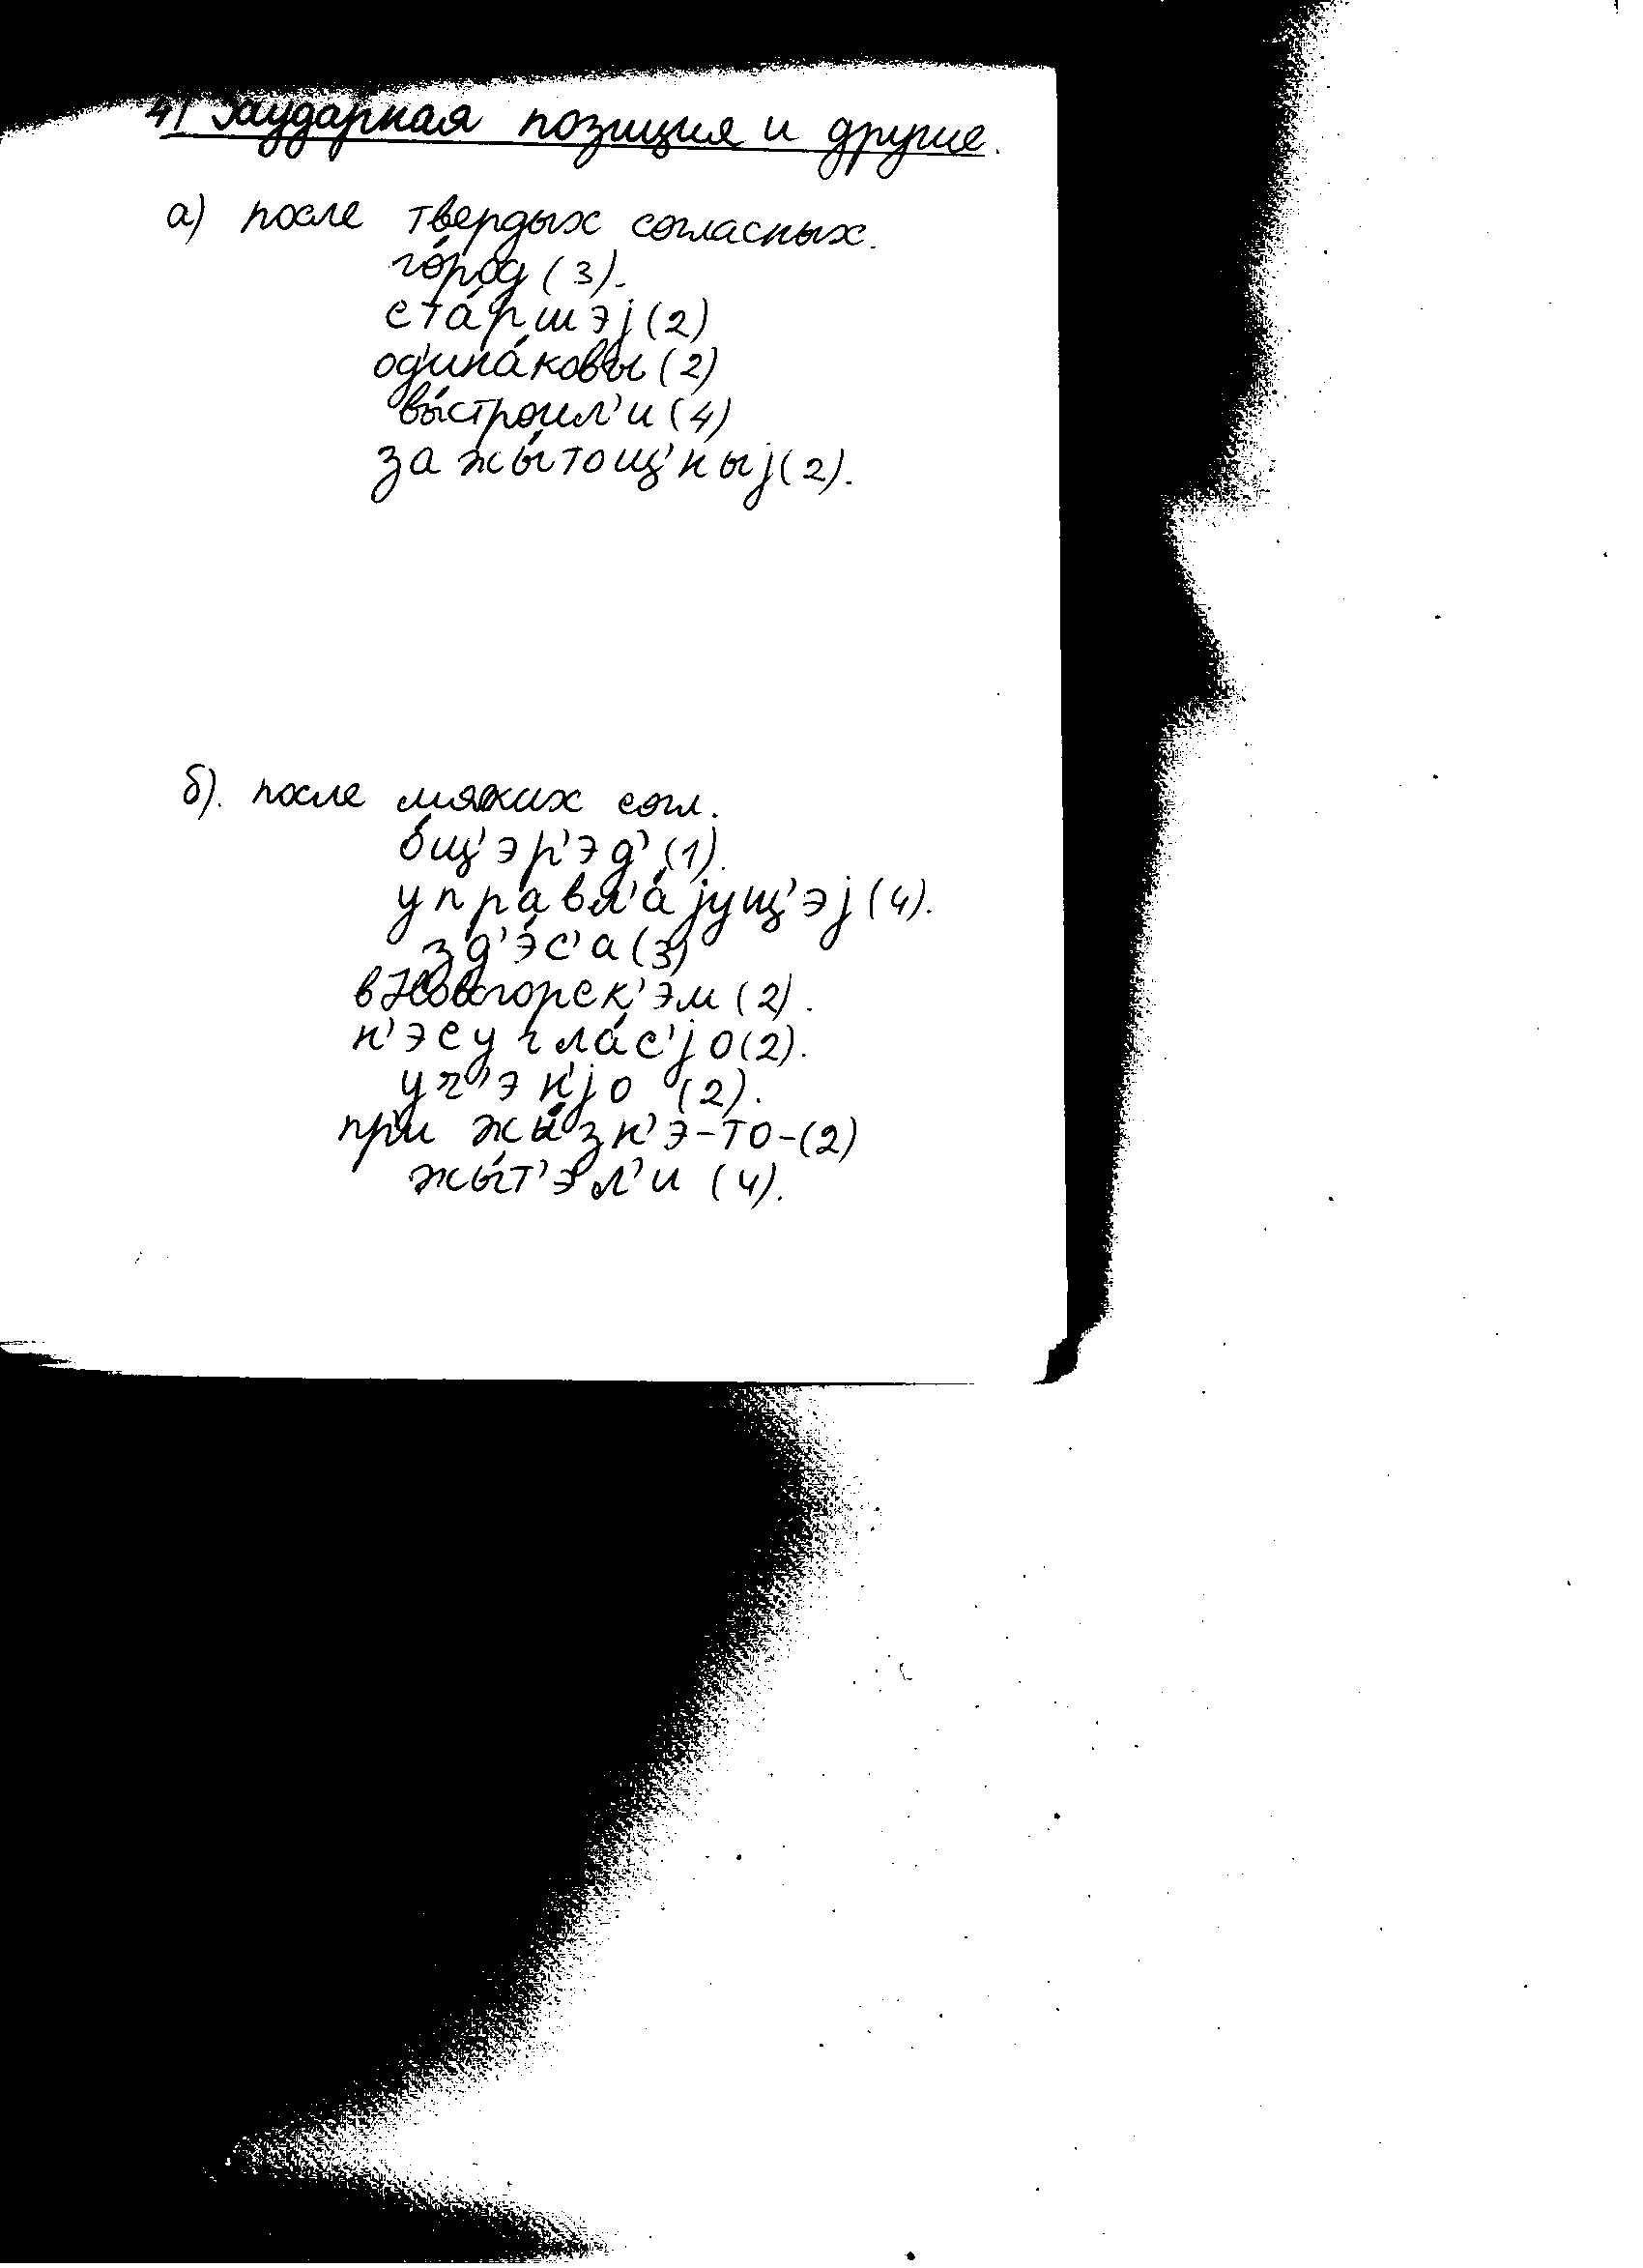 4) Заударная позиция и другие.
а) после твердых согласных.
го́род (3).
ста́ршэj (2)
од'ина́ковы (2)
вы́строил'и (4)
зажы́тощ'ныj (2).
б). после мягких согл.
о́щ'эр'эд' (1).
управл'а́jущ'эj (4).
зд'э́с'а (3)
в Новогорск'эм (2).
н'эсугла́с'jо (2).
уч'э́н'jо (2).
при жы́зн'э-то-(2)
жы́т'эл'и (4).